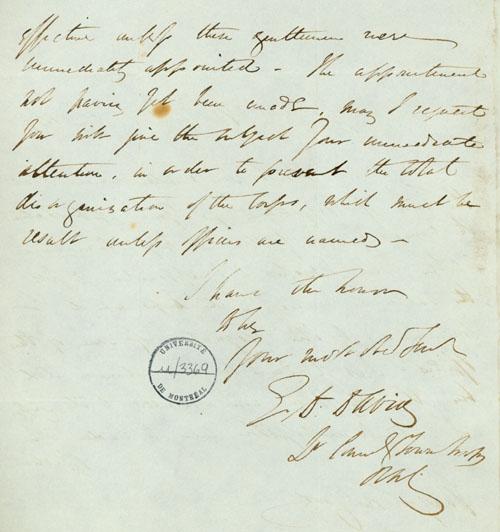 effective unless these gentlemen were
immediately appointed - The appointment
not having yet been made, may I request
your give the subject your immediate
attention, in order to prevent the total
disorganization of the Corps, which must be
result unless officers are named -
I have the honor
to be
Your most Obt Servt
E. D. David
UNIVERSITÉ
u/3369
DE MONTRÉAL